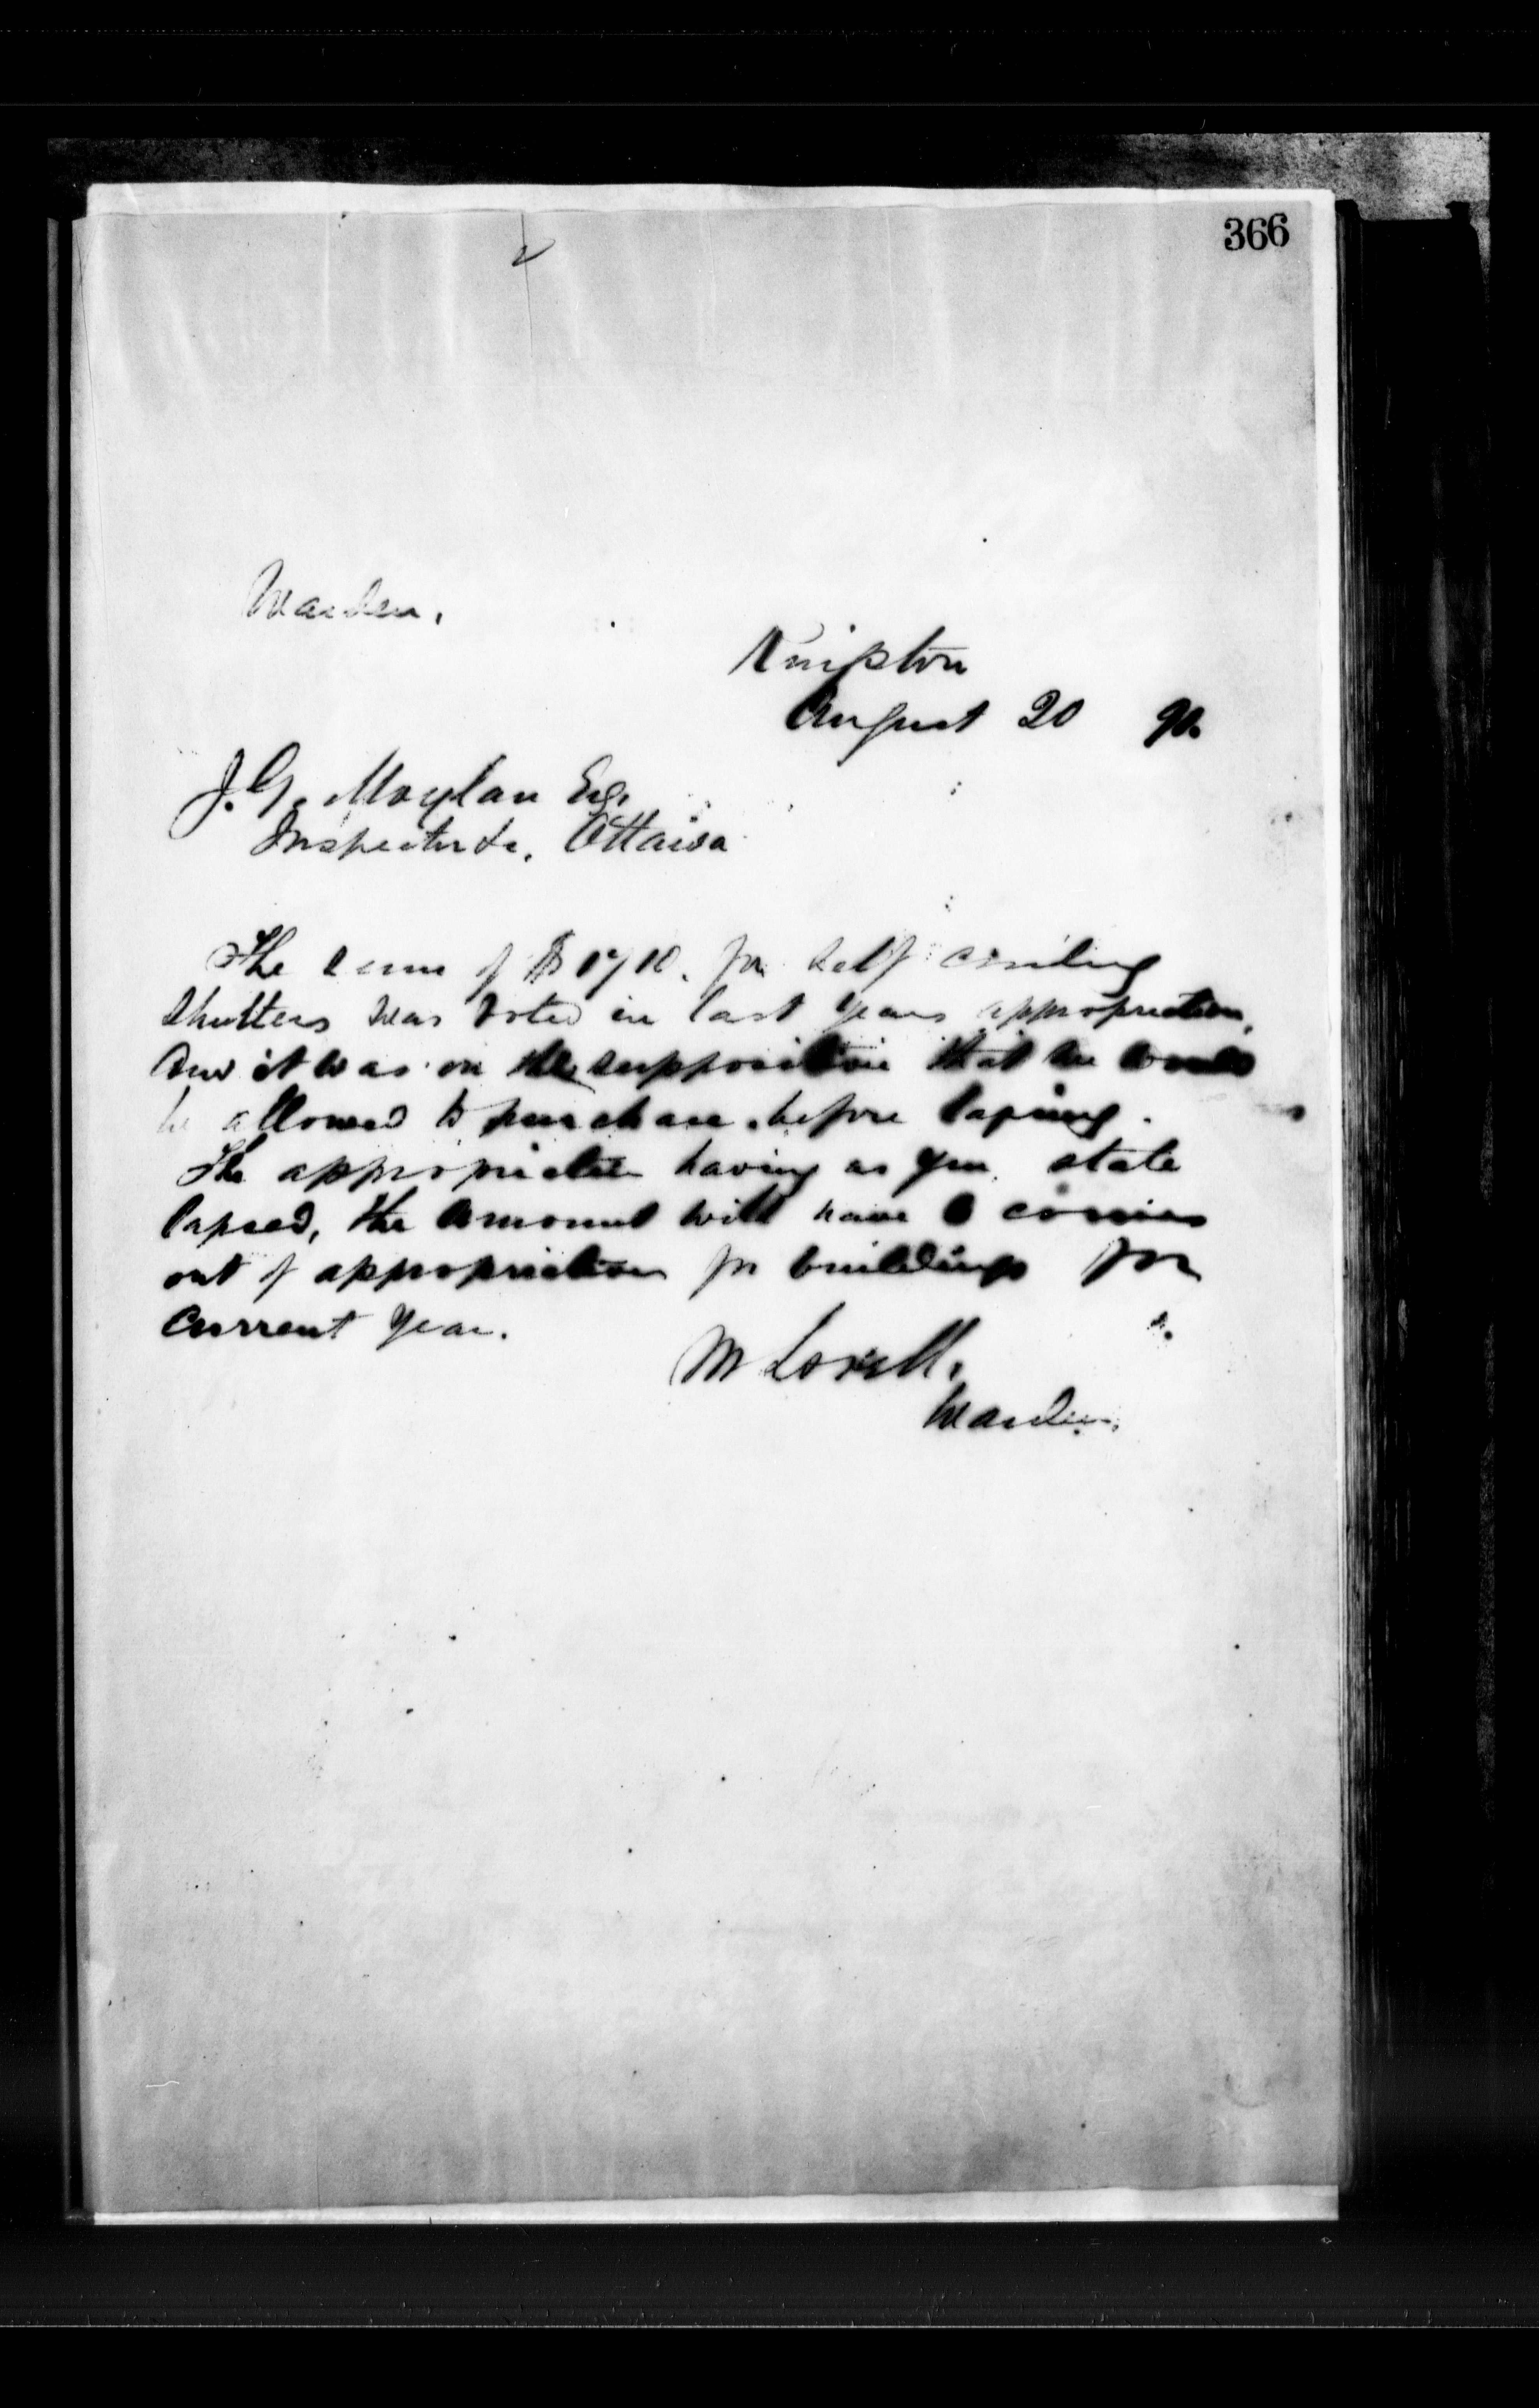 366
Warden.
Kingston
August 20 90.
J. G. Moylan Esq.
Inspector &c. Ottawa
The sum of $1710. for self coiling
shutters was voted in last years appropriation,
and it was on the supposition that we would
be allowed to purchase before lapsing.
The appropriation having as you state
lapsed, the amount will have to come
out of appropriation for buildings for
current year.
M Lavell.
Warden.